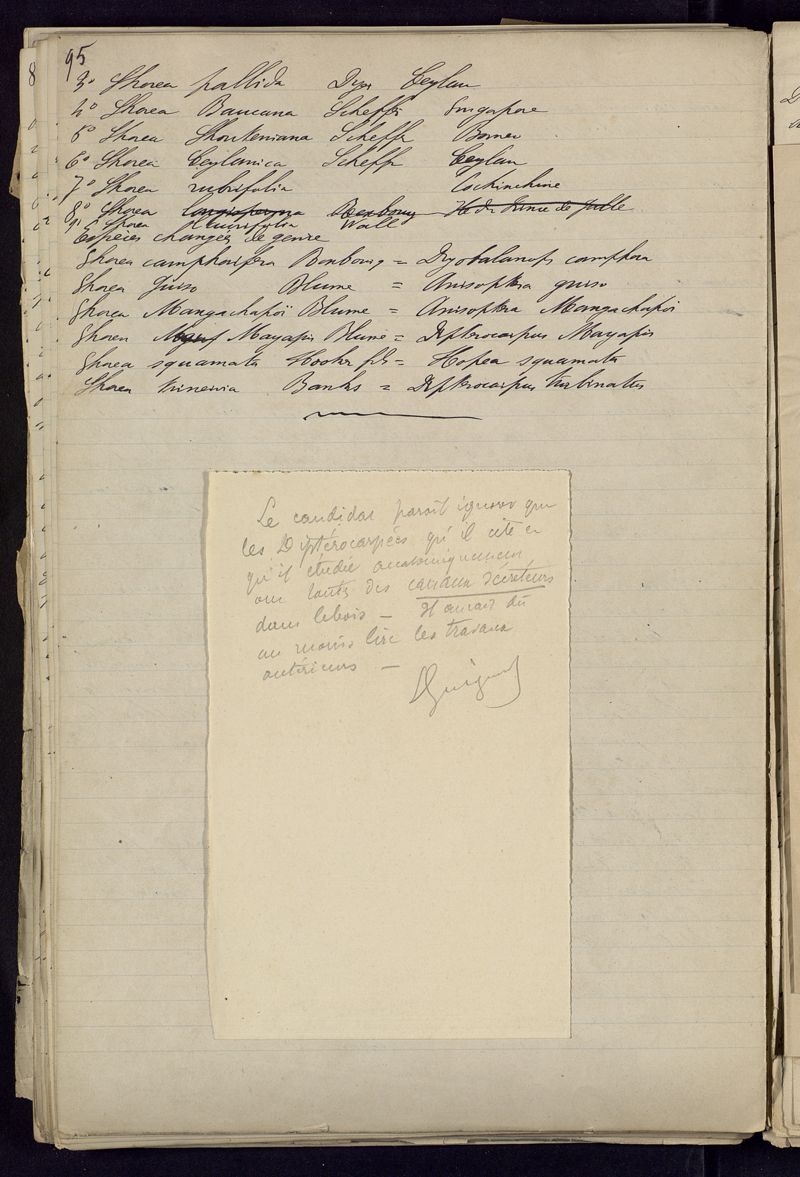 95
3º Shorea pallida Dyer Ceylan
4º Shorea Bancana Scheff. Singapore
5º Shorea Shouteniana Scheff. Borneo
6º Shorea Ceylanica Scheff. Ceylan
7º Shorea rubrifolia Cochinchine
8º Shorea longisperma Roxbourg Ile du Prince de Galle
Shorea Wall
Espèces changées de genre
Shorea camphorifera Roxbourg = Dryobalanops camphora
Shorea Guiso Blume = Anisoptera guiso
Shorea Mangachapoï Blume = Anisoptera Mangachapoï
Shorea Mayapis Blume = Dipterocarpus Mayapis
Shorea squamata Hooker fils = Hopea squamata
Shorea trinervia Banks = Dipterocarpus turbinatus
Le candidat paraît ignorer que
les Diptérocarpées qu'il cite et
qu'il étudie anatomiquement
ont toutes des canaux sécréteurs
dans le bois — Il aurait dû
au moins lire les travaux
antérieurs —
Guignard